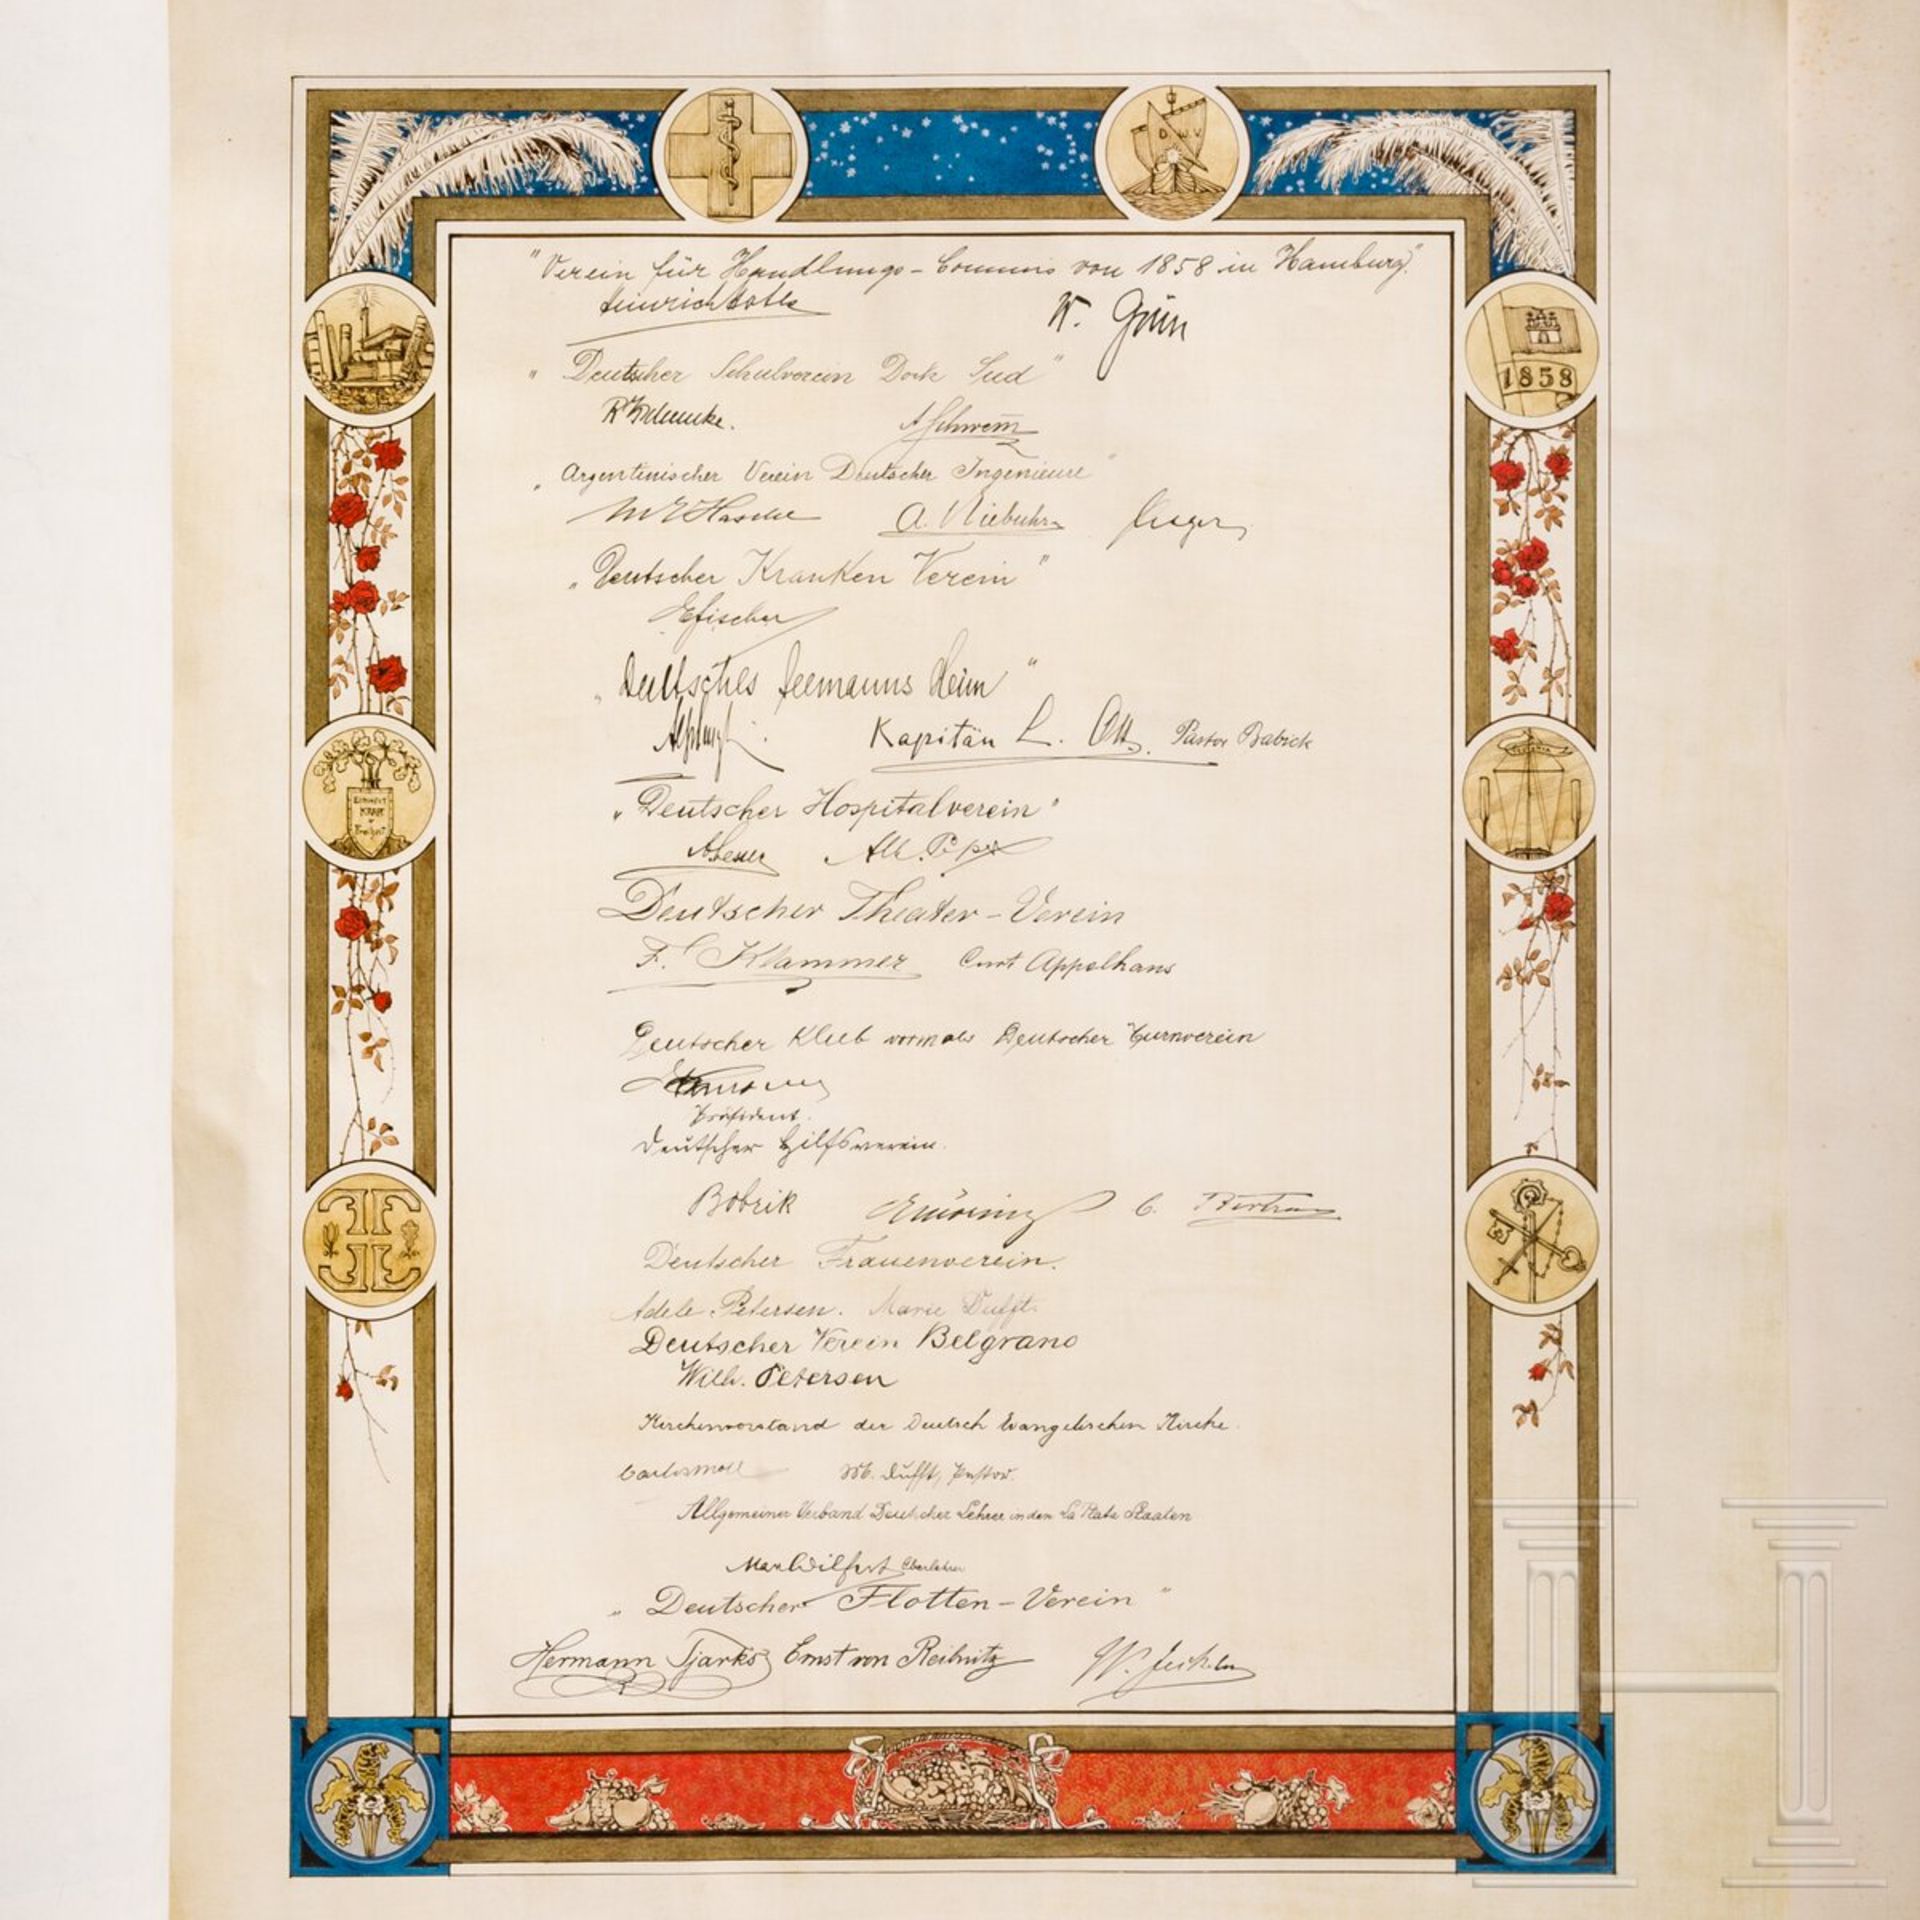 D. W. V.
"Verein für Handlungs-Commis von 1858 in Hamburg".
W. Grün
"Deutscher Schulverein Dock Sud"
1858
"Argentinischer Verein Deutscher Ingenieure"
A. Niebuhr
"Deutscher Kranken Verein"
E Fischer
"Deutsches Seemanns Heim"
Kapitän L. Ott. Pastor Babick
Einheit
Kraft
Freiheit
"Deutscher Hospitalverein"
Deutscher Theater-Verein
F. Klammer Curt Appelhans
Deutscher Klub vormals Deutscher Turnverein
Präsident.
Deutscher Hilfsverein.
Bobrik
Deutscher Frauenverein.
Adele Petersen. Marie Dufft.
Deutscher Verein Belgrano
Wilh. Petersen
Kirchenvorstand der Deutsch Evangelischen Kirche.
Carlos Moll W. Dufft, Pastor.
Allgemeiner Verband Deutscher Lehrer in den La Plata Staaten
Max Wilfert Oberlehrer
"Deutscher Flotten-Verein"
Hermann Tjarks Ernst von Reibnitz